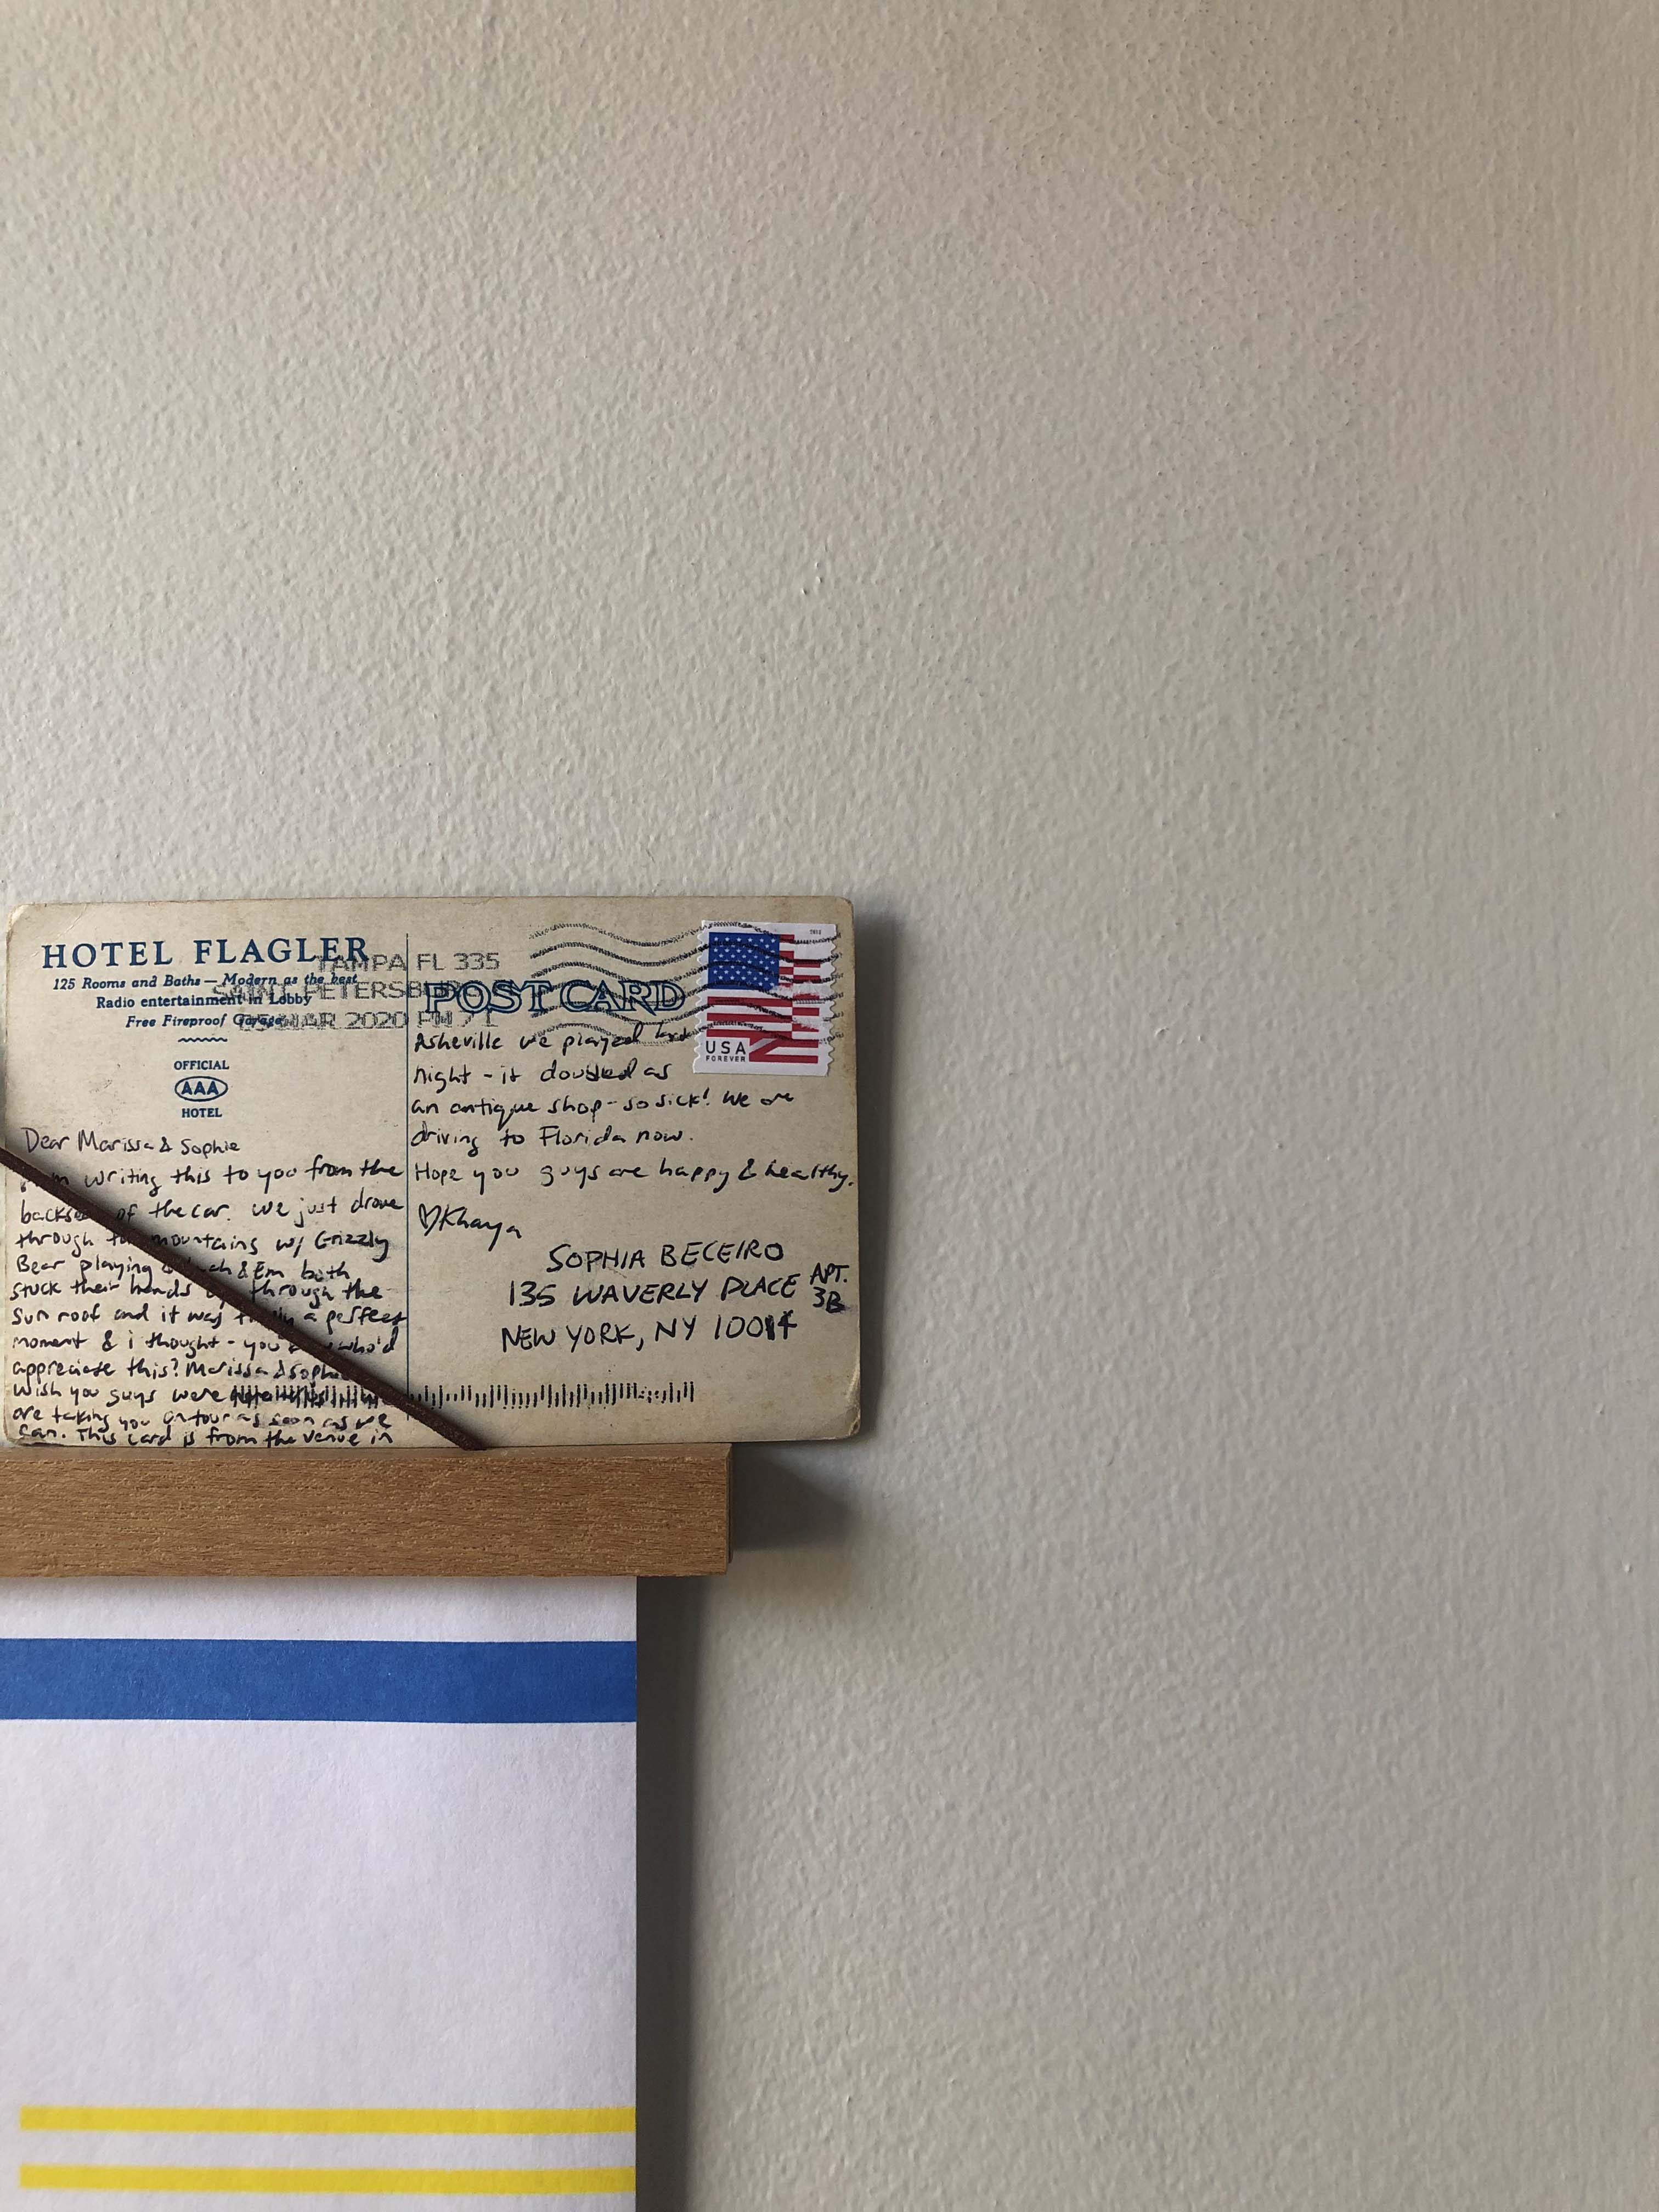 HOTEL FLAGLER
125 Rooms and Baths — Modern as the best
Radio entertainment in Lobby
Free Fireproof Garage
OFFICIAL
AAA
HOTEL
TAMPA FL 335
SAINT PETERSBURG
MAR 2020 PM
POST CARD
USA
FOREVER
Dear Marissa & Sophie
writing this to you from the
of the car. We just drove
through mountains w/ Grizzly
Bear playing & Em both
stuck their heads through the
sun roof and it was a perfect
moment & i thought - you who'd
appreciate this? Marissa &
wish you guys were
are taking you on tour as soon as we
can. This card is from the venue in
Asheville we played last
night - it doubled as
an antique shop - so sick! We are
driving to Florida now.
Hope you guys are happy & healthy.
♡Khaya
SOPHIA BECEIRO
135 WAVERLY PLACE APT. 3B
NEW YORK, NY 10014